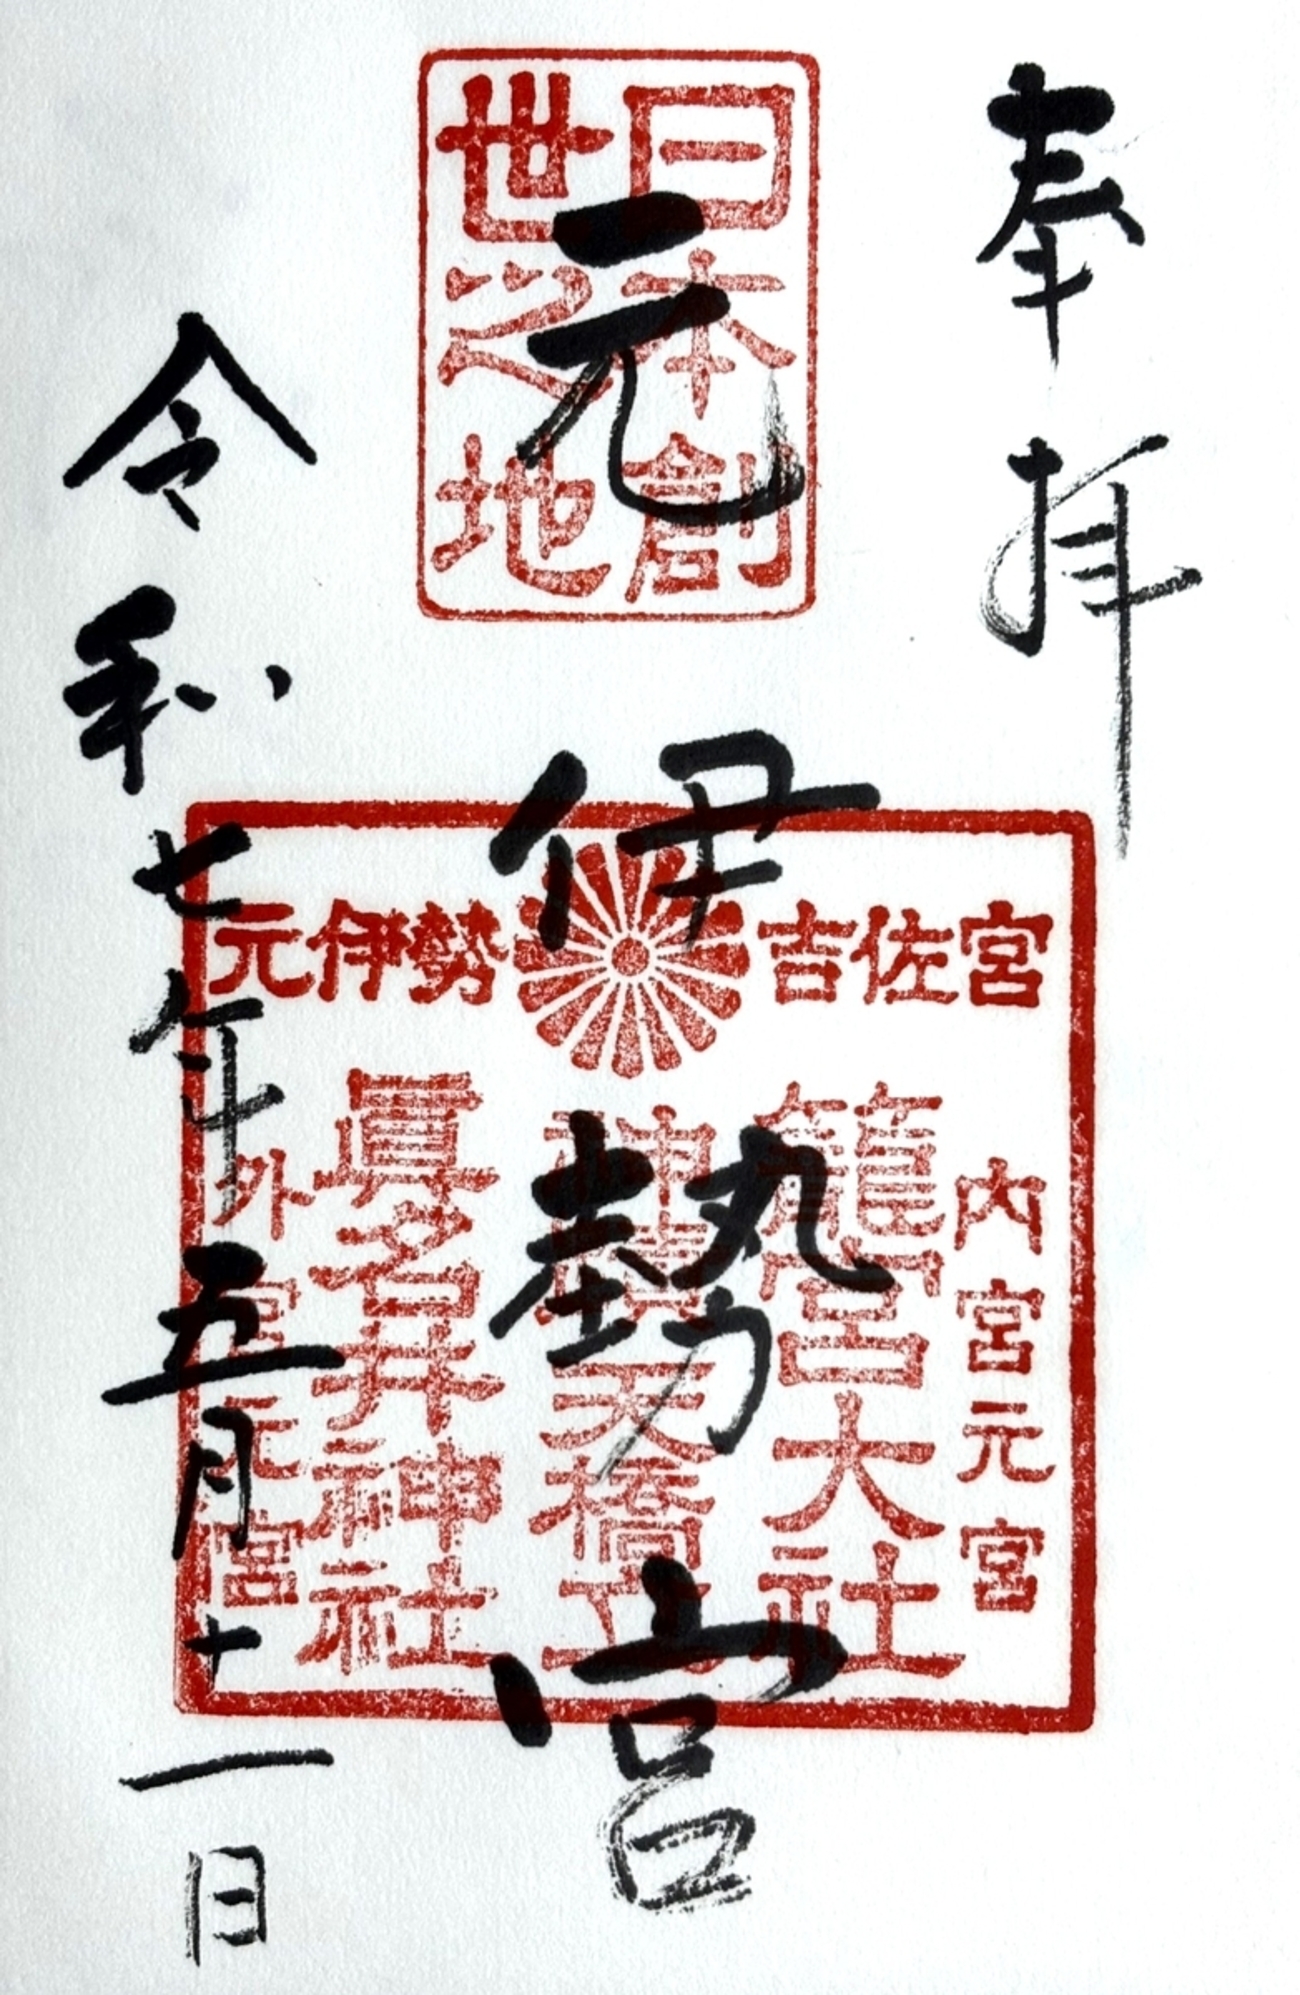 奉拝
日本創
世之地
元伊勢宮
元伊勢 吉佐宮
内宮元宮
籠宮大社
神寶天橋立
眞名井神社
外宮元宮
令和七年五月十一日